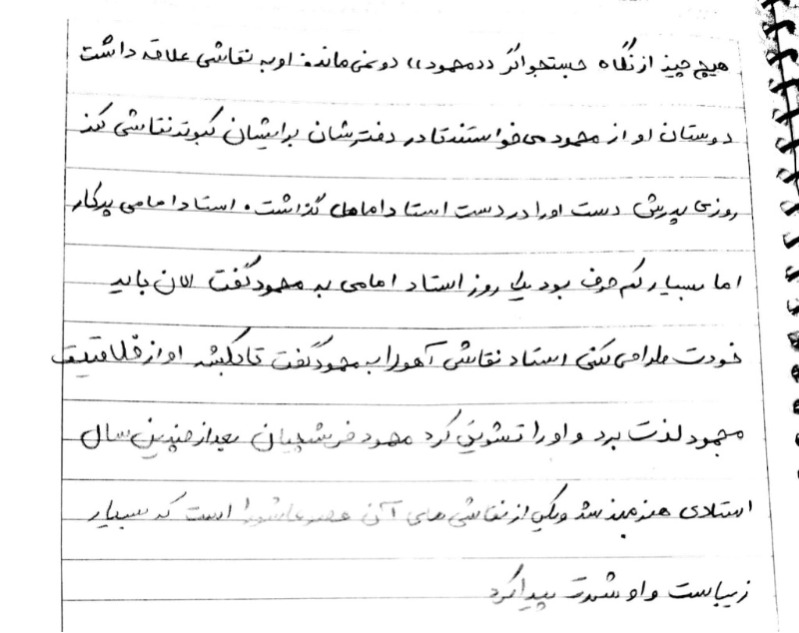 هیچ چیز از نگاه جستجوگر ((محمود)) دو نمی‌ماند. او به نقاشی علاقه داشت
دوستان او از محمود می‌خواستند تا در دفترشان برایشان کبوتر نقاشی کند
روزی پدرش دست او را در دست استاد امامی گذاشت. استاد امامی پرکار
اما بسیار کم حرف بود یک روز استاد امامی به محمود گفت الان باید
خودت طراحی کنی استاد نقاشی آهو را به محمود گفت تا بکشد او از خلاقیت
محمود لذت برد و او را تشویق کرد محمود فرشچیان بعد از چندین سال
استادی هنرمند شد و یکی از نقاشی های آن عصر عاشورا است که بسیار
زیباست و او شهرت پیدا کرد